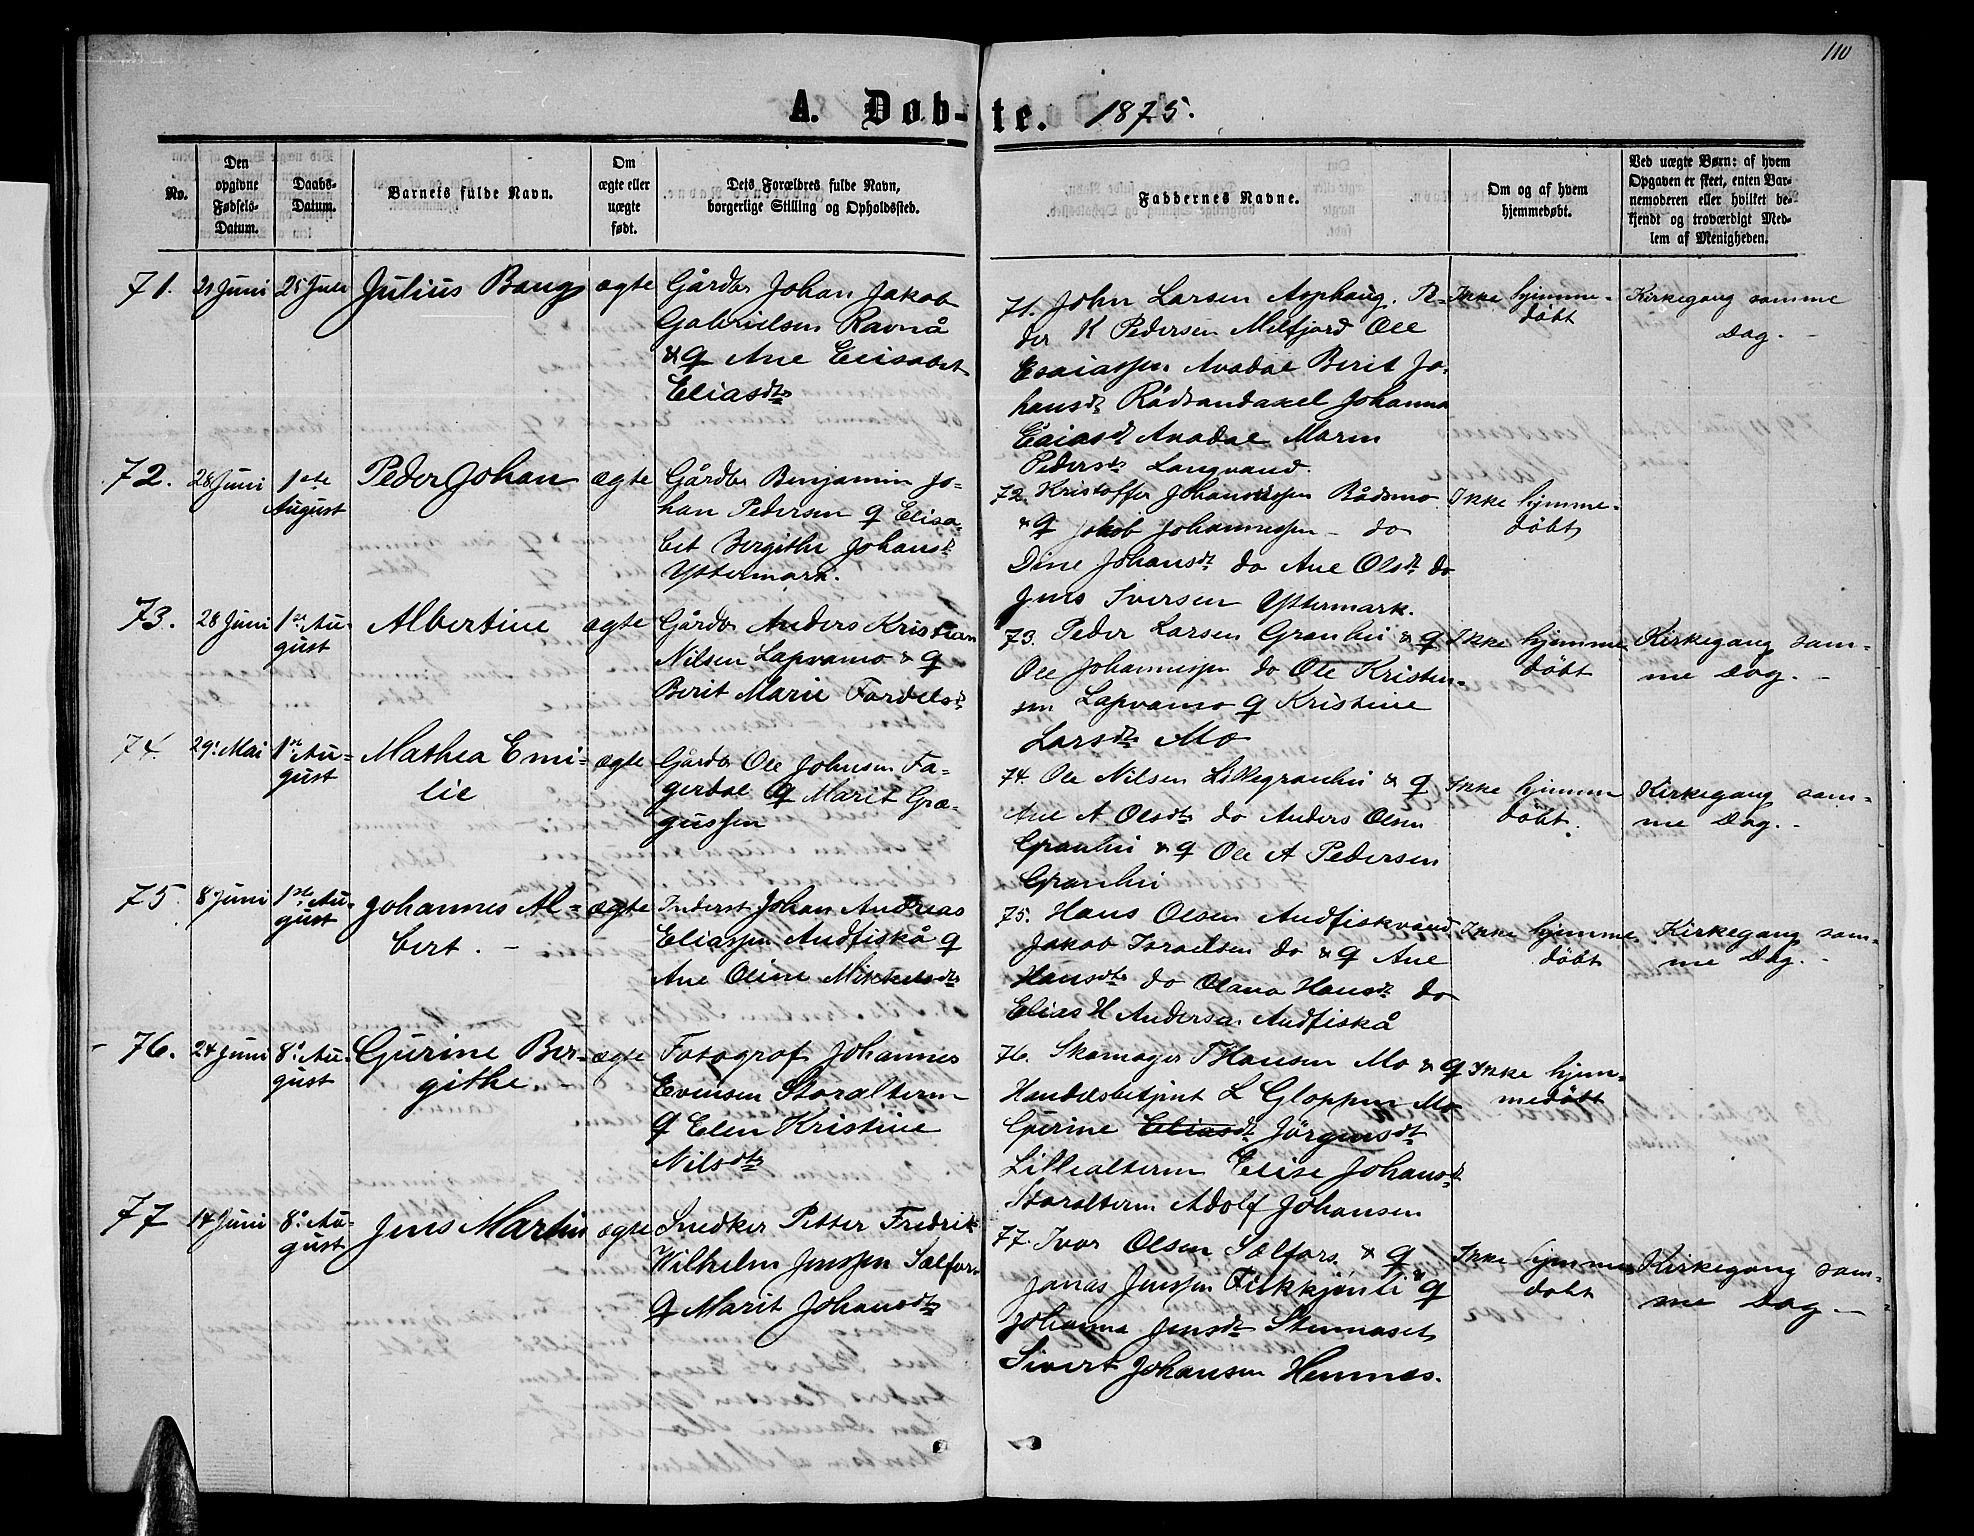 110
A. Døb-te. 1875.
No.
Den opgivne Fødsels-Datum.
Daabs-Datum.
Barnets fulde Navn.
Om ægte eller uægte født.
Dets Forældres fulde Navn, borgerlige Stilling og Opholdssted.
Faddernes Navne.
Om og af hvem hjemmedøbt.
Ved uægte Børn: af hvem Opgaven er skeet, enten Barnemoderen eller hvilket bekjendt og troværdigt Medlem af Menigheden.
71. 21 Juni 25 Juli Julius Bang ægte
Gårdbr Johan Jakob
Gabrielsen Ravnå
& q Ane Elisabet
Eliasdtr
71. John Larsen Asphaug. Pe-
der K Pedersen Melfjord Ole
Esaiassen Avadal Berit Jo-
hansdtr Rödsandaxel Johanna
Esaiasdtr Avadal Maren
Pedersdtr Langvand.
Ikke hjemme-
döbt
Kirkegang samme
Dag. -
72. 28 Juni 1ste
August
Peder Johan ægte
Gårdbr Benjamin Jo-
han Pedersen q Elisa-
bet Bergithe Johansdtr
Yttermark.
72. Kristoffer Johannessen Rådsmo
& q Jakob Johannessen - do
Dine Johansdtr do Ane Olsdtr do
Jens Iversen Yttermark.
Ikke hjemme-
döbt
73. 28 Juni 1ste Au-
gust
Albertine ægte
Gårdbr Anders Kristian
Nilsen Lapvamo & q
Berit Marie Fordelsdtr
73. Peder Larsen Granhei & q
Ole Johannessen do Ole Kristen-
sen Lapvamo q Kristine
Larsdtr Mo
Ikke hjemme
döbt
Kirkegang sam-
me Dag. -
74. 29. Mai 1ste Au-
gust
Mathea Emi-
lie
ægte
Gårdbr Ole Johnsen Fa-
gerdal q Marit Græ-
gussen
74. Ole Nilsen Lillegranhei & q
Ane A Olsdtr do Anders Olsen
Granhei & q Ole A Pedersen
Granhei
Ikke hjemme
döbt.
Kirkegang sam-
me Dag. -
75. 8 Juni 1ste Au-
gust
Johannes Al-
bert. -
ægte
Inderst Johan Andreas
Eliassen Andfiskå q
Ane Oline Mikkelsdtr
75. Hans Olsen Andfiskvand
Jakob Israelsen do & q Ane
Hansdtr do Olava Hansdtr do
Elias H Andersen Andfiskå
Ikke hjemme
döbt
Kirkegang sam-
me Dag. -
76. 24 Juni 8. Au-
gust
Gurine Ber-
githe. -
ægte
Fotograf Johannes
Evensen Storalteren
q Elen Kristine
Nilsdtr
76. Skomager T Hansen Mo & q
Handelsbetjent L Gloppen Mo
Gurine Eliasdtr Jörgensdtr
Lillealteren Elise Johansdtr
Storalteren Adolf Johansen
Ikke hjem-
medöbt
77 14 Juni 8. Au-
gust
Jens Martin ægte
Snedker Petter Fredrik
Wilhelm Jenssen Selfors
q Marit Johansdtr
77. Ivar Olsen Selfors & q
Jonas Jenssen Fiskkjønli & q
Johanna Jensdtr Stennaset
Sivert Johansen Hemnes.
Ikke hjemme
döbt
Kirkegang sam-
me Dag -